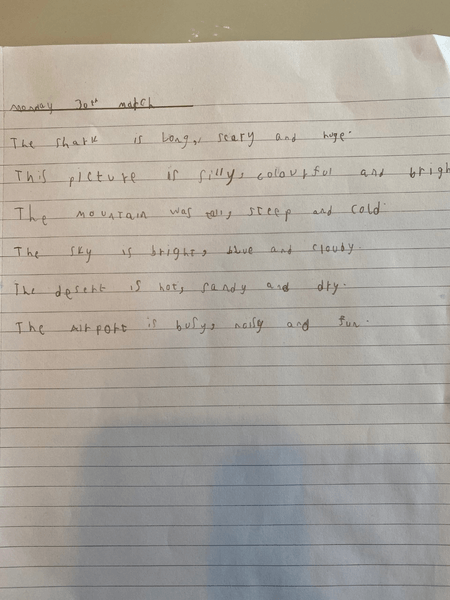 Monday 30th March
The shark is long, scary and huge.
This picture is silly, colourful and brigh
The mountain was tall, steep and cold.
The sky is bright, blue and cloudy.
The desert is hot, sandy and dry.
The airport is busy, noisy and fun.